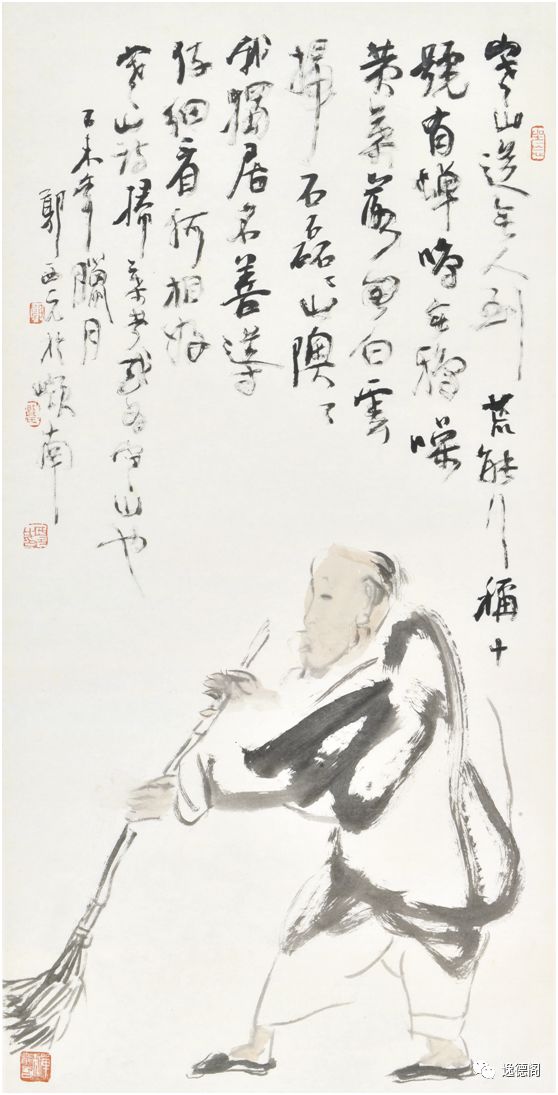 寒山道無人到 若能行 稱十
號有蟬鳴無鴉噪
黃葉落白雲
掃 石磊〻山隩〻
我獨居名善導
仔細看何相好
寒山詩掃葉山也
己未年臘月
鄭於南
逸德阁